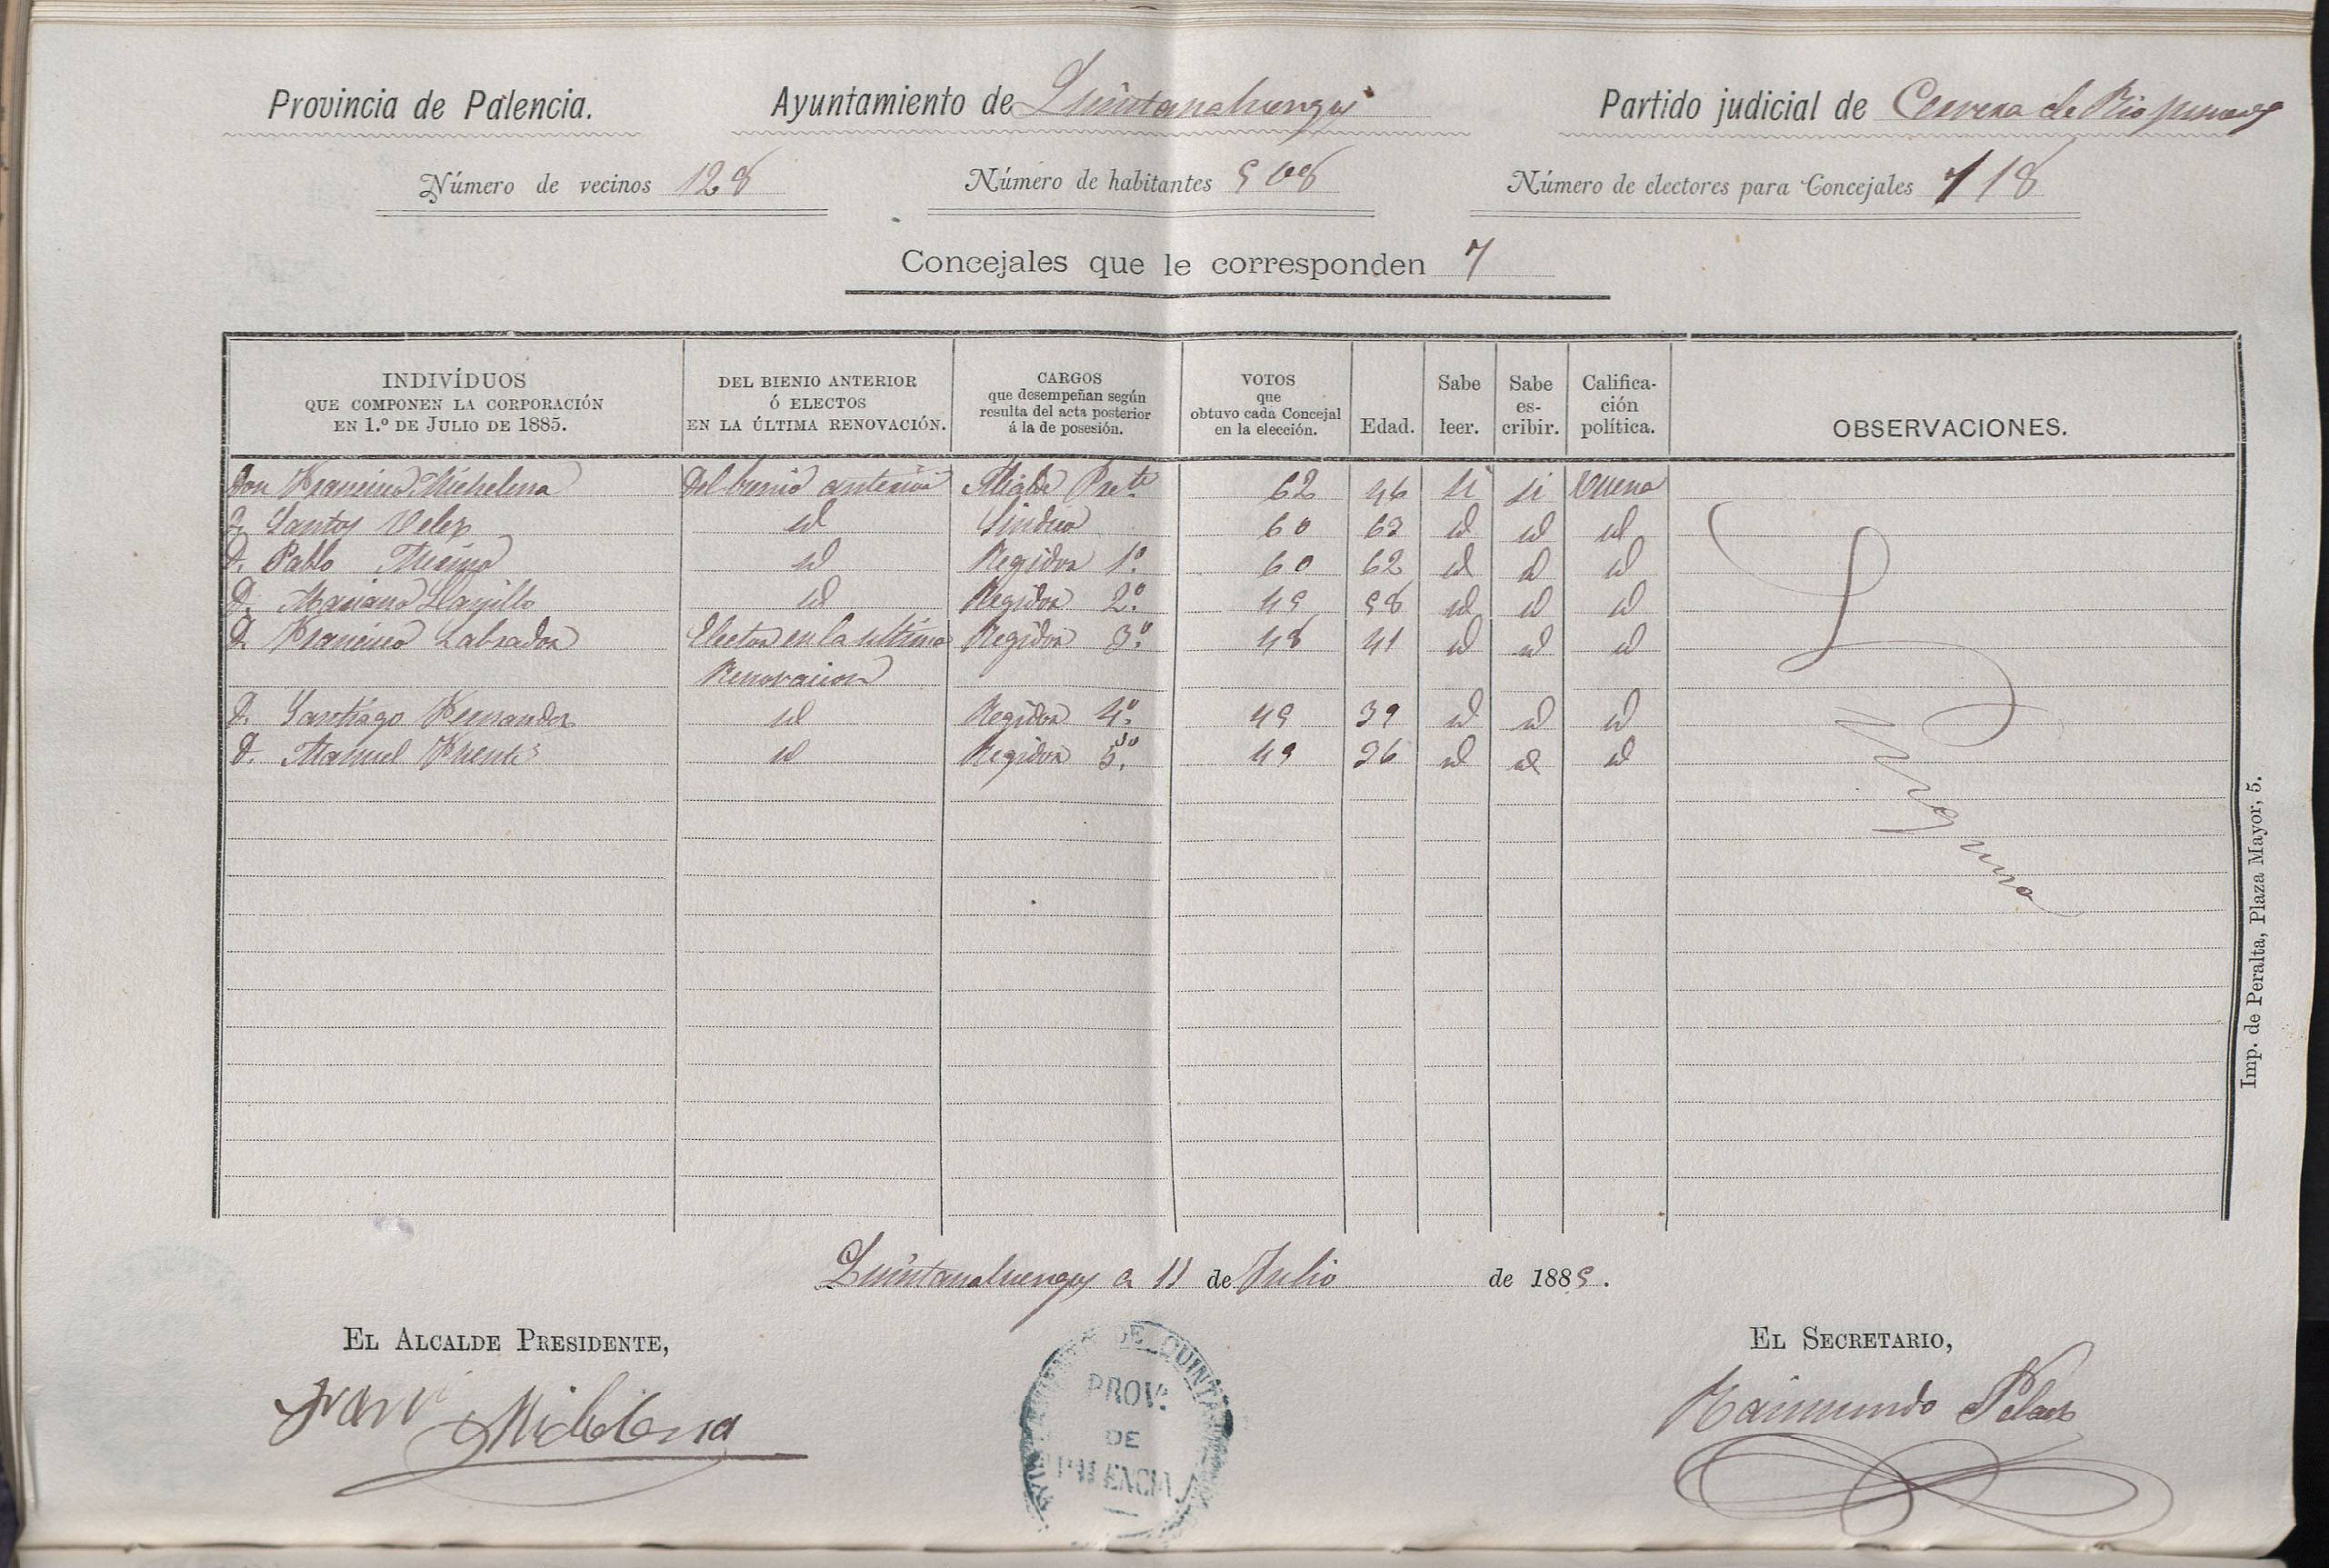 Provincia de Palencia. Ayuntamiento de Quintanaluengos Partido judicial de Cervera de Rio pisuerga
Número de vecinos 128 Número de habitantes 508 Número de electores para Concejales 118
Concejales que le corresponden 7
INDIVÍDUOS QUE COMPONEN LA CORPORACIÓN EN 1.º DE JULIO DE 1885. DEL BIENIO ANTERIOR Ó ELECTOS EN LA ÚLTIMA RENOVACIÓN. CARGOS que desempeñan según resulta del acta posterior á la de posesión. VOTOS que obtuvo cada Concejal en la elección. Edad. Sabe leer. Sabe es-cribir. Califica-ción política. OBSERVACIONES.
Don Francisco Michelena Del bienio anterior Alcalde Prete. 62 46 si si buena
D. Santos Velez id Sindico 60 63 id id id
D. Pablo Merino id Regidor 1º. 60 62 id id id
D. Mariano id Regidor 2º. 45 58 id id id
D. Francisco Labrador Electos en la ultima Regidor 3º. 48 41 id id id
Renovacion
D. Santiago Fernandez id Regidor 4º. 45 39 id id id
D. Manuel Fuente id Regidor 5º. 49 36 id id id
Ninguna
Imp. de Peralta, Plaza Mayor, 5.
Quintanaluengos a 11 de Julio de 1885.
EL ALCALDE PRESIDENTE, EL SECRETARIO,
Franco Michelena Raimundo Pelaez
DE QUINTA
PROV.ª
DE
PALENCIA